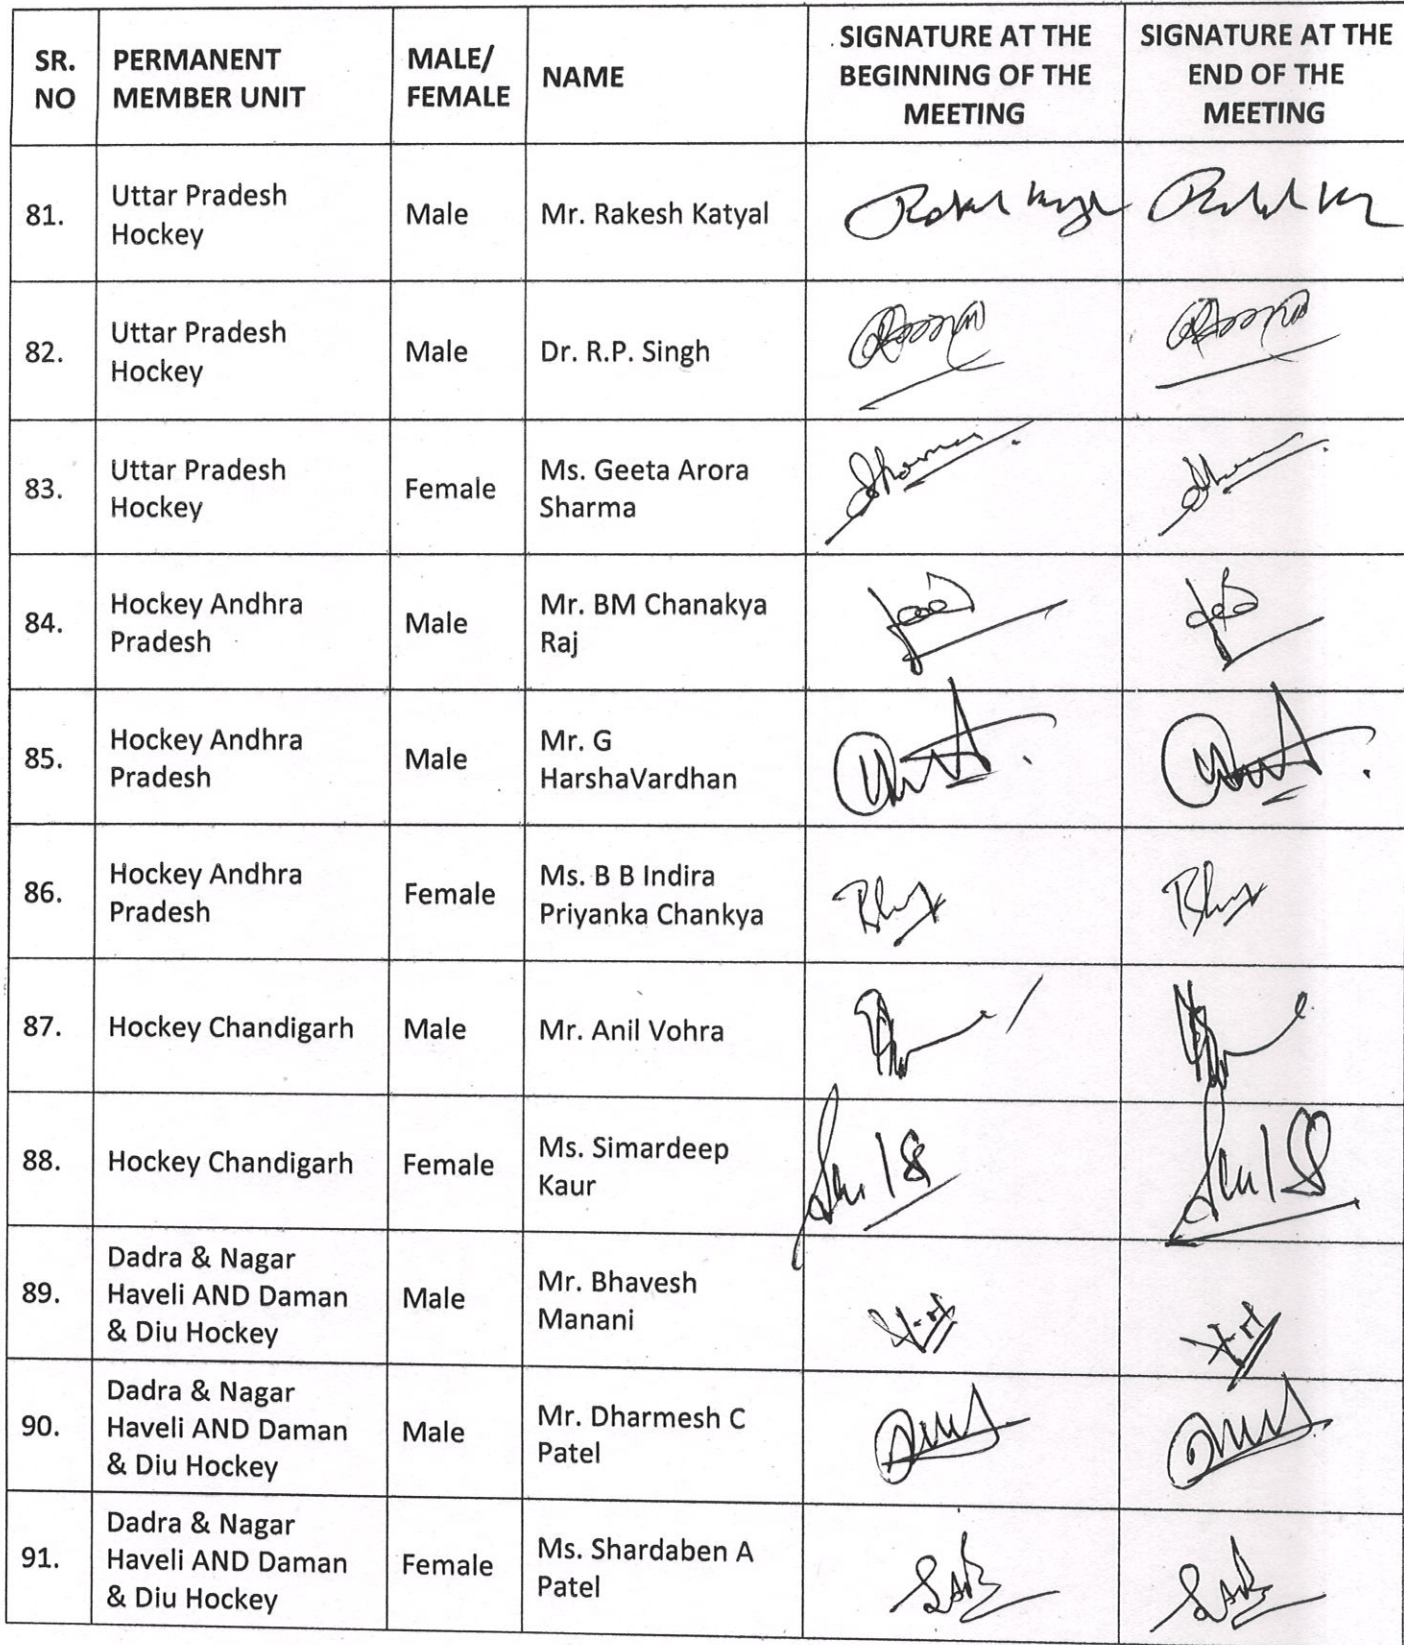 SR. NO
PERMANENT MEMBER UNIT
MALE/ FEMALE
NAME
SIGNATURE AT THE BEGINNING OF THE MEETING
SIGNATURE AT THE END OF THE MEETING
81.
Uttar Pradesh
Hockey
Male
Mr. Rakesh Katyal
82.
Uttar Pradesh
Hockey
Male
Dr. R.P. Singh
83.
Uttar Pradesh
Hockey
Female
Ms. Geeta Arora
Sharma
84.
Hockey Andhra
Pradesh
Male
Mr. BM Chanakya
Raj
85.
Hockey Andhra
Pradesh
Male
Mr. G
HarshaVardhan
86.
Hockey Andhra
Pradesh
Female
Ms. B B Indira
Priyanka Chankya
87.
Hockey Chandigarh
Male
Mr. Anil Vohra
88.
Hockey Chandigarh
Female
Ms. Simardeep
Kaur
89.
Dadra & Nagar
Haveli AND Daman
& Diu Hockey
Male
Mr. Bhavesh
Manani
90.
Dadra & Nagar
Haveli AND Daman
& Diu Hockey
Male
Mr. Dharmesh C
Patel
91.
Dadra & Nagar
Haveli AND Daman
& Diu Hockey
Female
Ms. Shardaben A
Patel